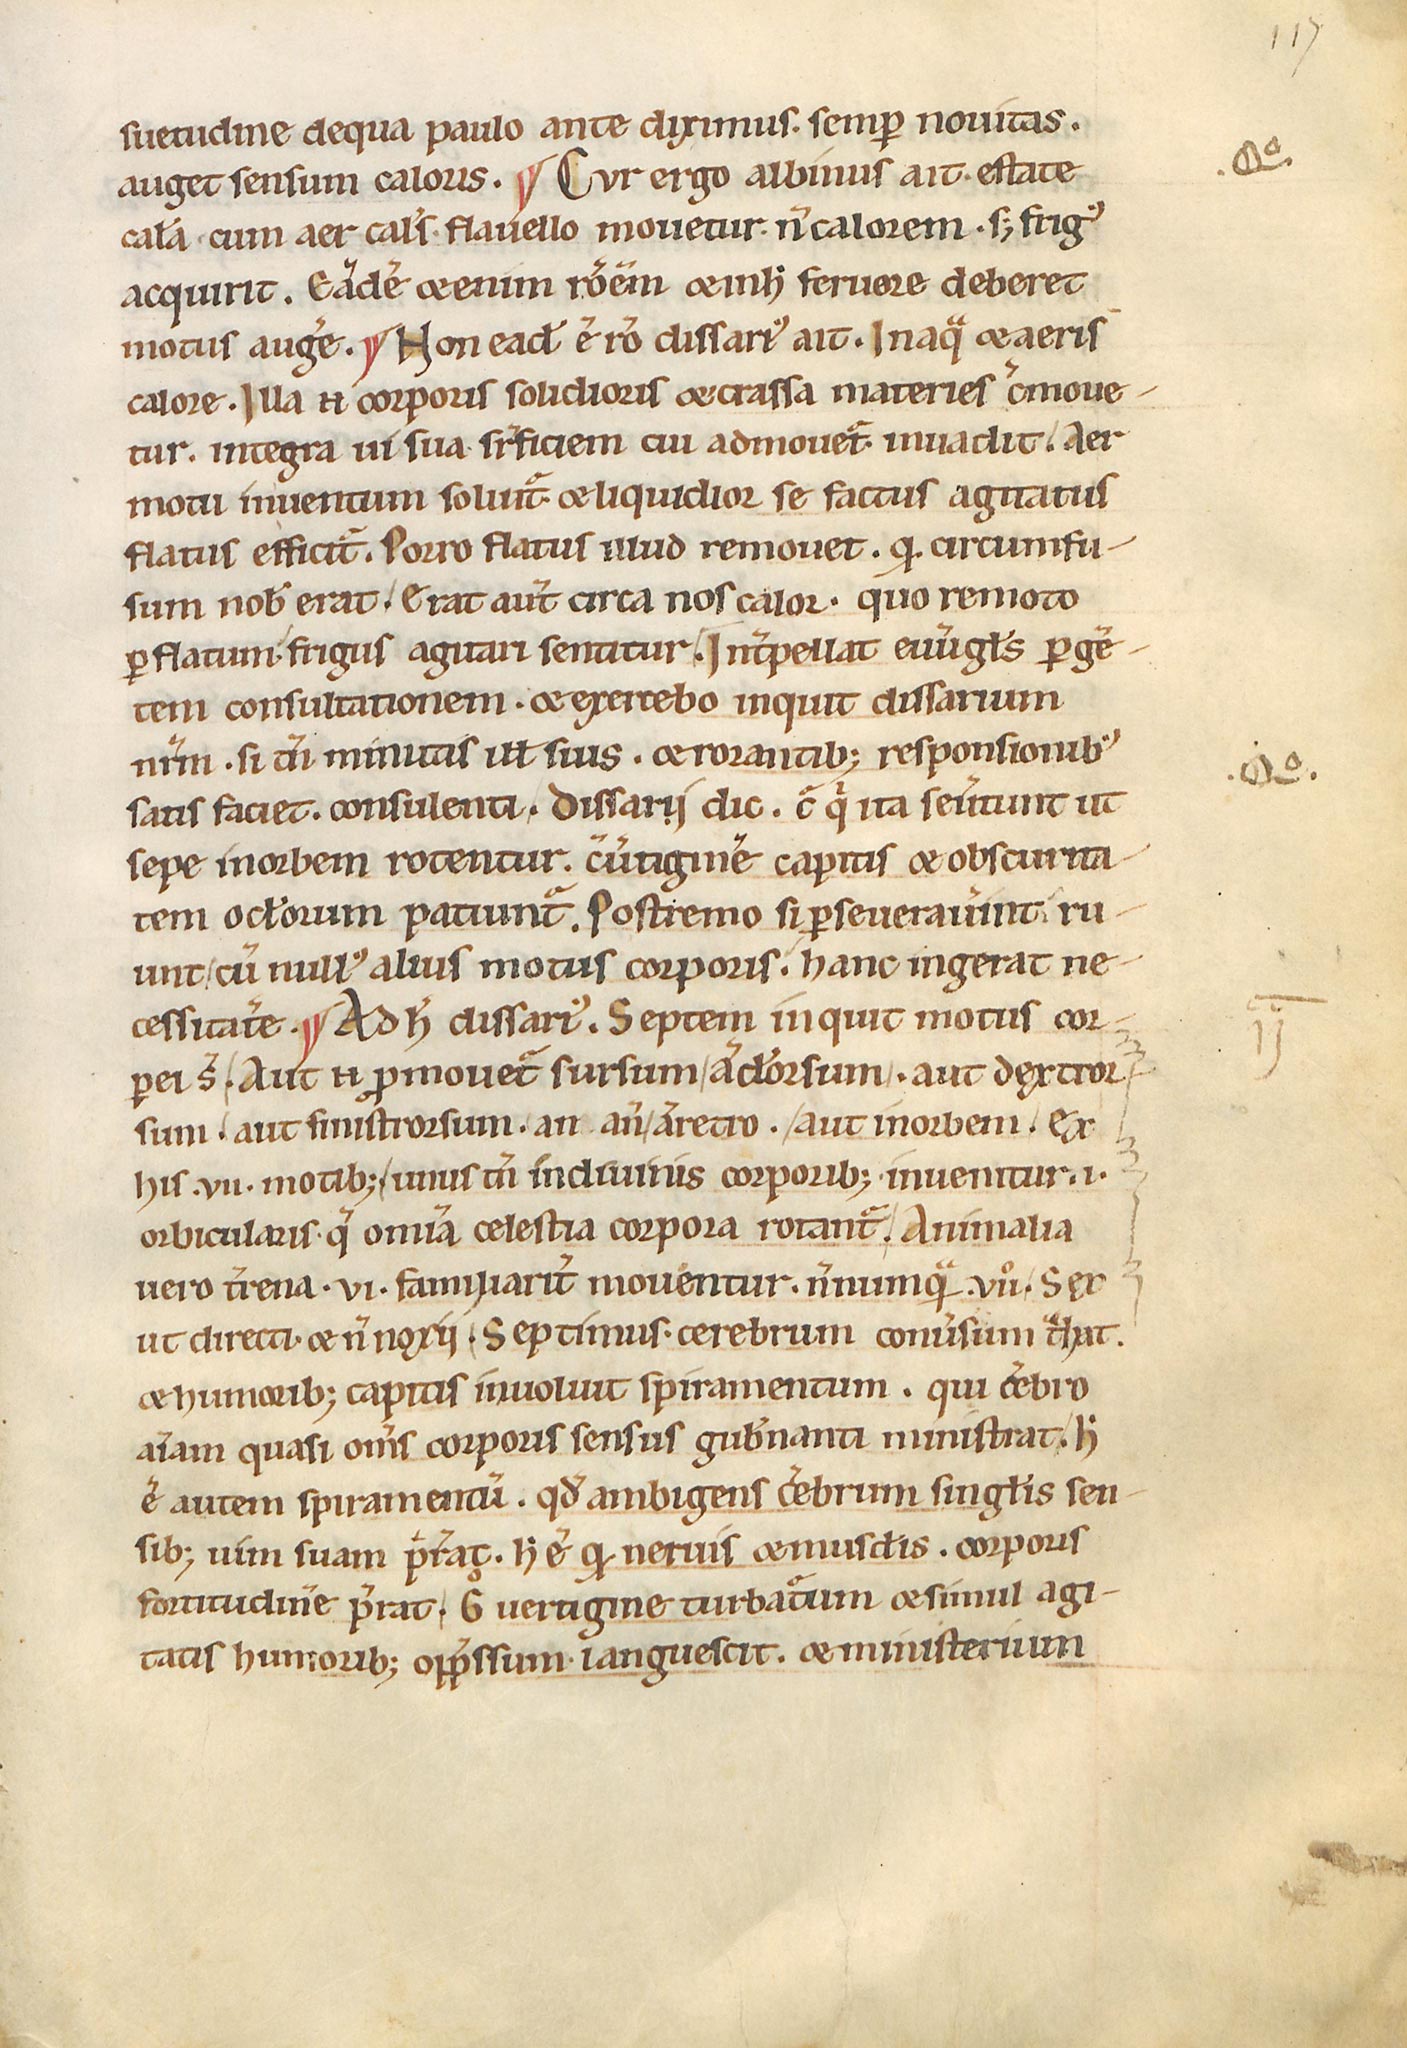 117
suetudine dequa paulo ante diximus. semꝑ nouitas.
auget sensum caloris. Cur ergo albinus ait. estate
cal̃a cum aer cal̃s. flauello mouetur. ñ calorem. s; frigꝰ
acquirit. Eãdẽ & enim rõẽm & inh̃ feruore deberet
motus augẽ. Non ead̃ ẽ rõ dissariꝰ ait. In aq̃ & aeris
calore. Illa n̄ corporis solidioris & crassa materies c̃moue-
tur. integra ui sua sr̃ficiem cui admouet̃ inuadit. Aer
motu inuentum soluit̃ & liquidior se factus agitatus
flatus efficit̃. Porro flatus illud remouet. qđ circumfu-
sum nob̃ erat. Erat aut̃ circa nos calor. quo remoto
ꝑ flatum frigus agitari sentitur. Int̃pellat euãgl̃s ꝑgẽ-
tem consultationem. & exercebo inquit dissarium
nr̃m. si tñ minutis ill̃ suis. & rorantib; responsionibꝰ
satis faciet. consulenti. Dissarii dic. c̃ q̃ ita sen̄tunt ut
sepe inorbem rotentur. & ũtiginẽ capitis & obscurita-
tem ocl̃orum patiunt̃. Postremo si ꝑseuerau̾int. ru-
unt cũ nullꝰ alius motus corporis. hanc ingerat ne-
cessitatẽ. Ad h̃ dissariꝰ. Septem inquit motus cor-
pei s̃. Aut n̄ ꝓmouet̃ sursum ãcl̃orsum. aut dextror
sum. aut sinistrorsum. an añ ãretro. aut inorbem. Ex
his .vii. motib; unus tñ indiuinis corporib; inuenitur .i.
orbicularis. q̃ omĩa celestia corpora rotant̃. Animalia
uero t̃rena .vi. familiarit̃ mouentur. ñnumq̃ .viiº. Sex
ut directi. & ñ noxii. Septimus. cerebrum conũsum t̃hat.
& humorib; capitis inuoluit spiramentum. qui c̃ebro
aĩam quasi om̃s corporis sensus gub̃nanti ministrat. h̃
ẽ autem spiramentũ. qđ ambigens c̃ebrum singl̃is sen-
sib; uim suam p̃r̃at. h̃ ẽ qđ neruis & muscl̃is. corporis
fortitudinẽ p̃rat. G̃ uertigine turbatum & simul agi-
tatis humorib; opp̃ssum languescit. & ministerium
.Qo.
.Qo.
II